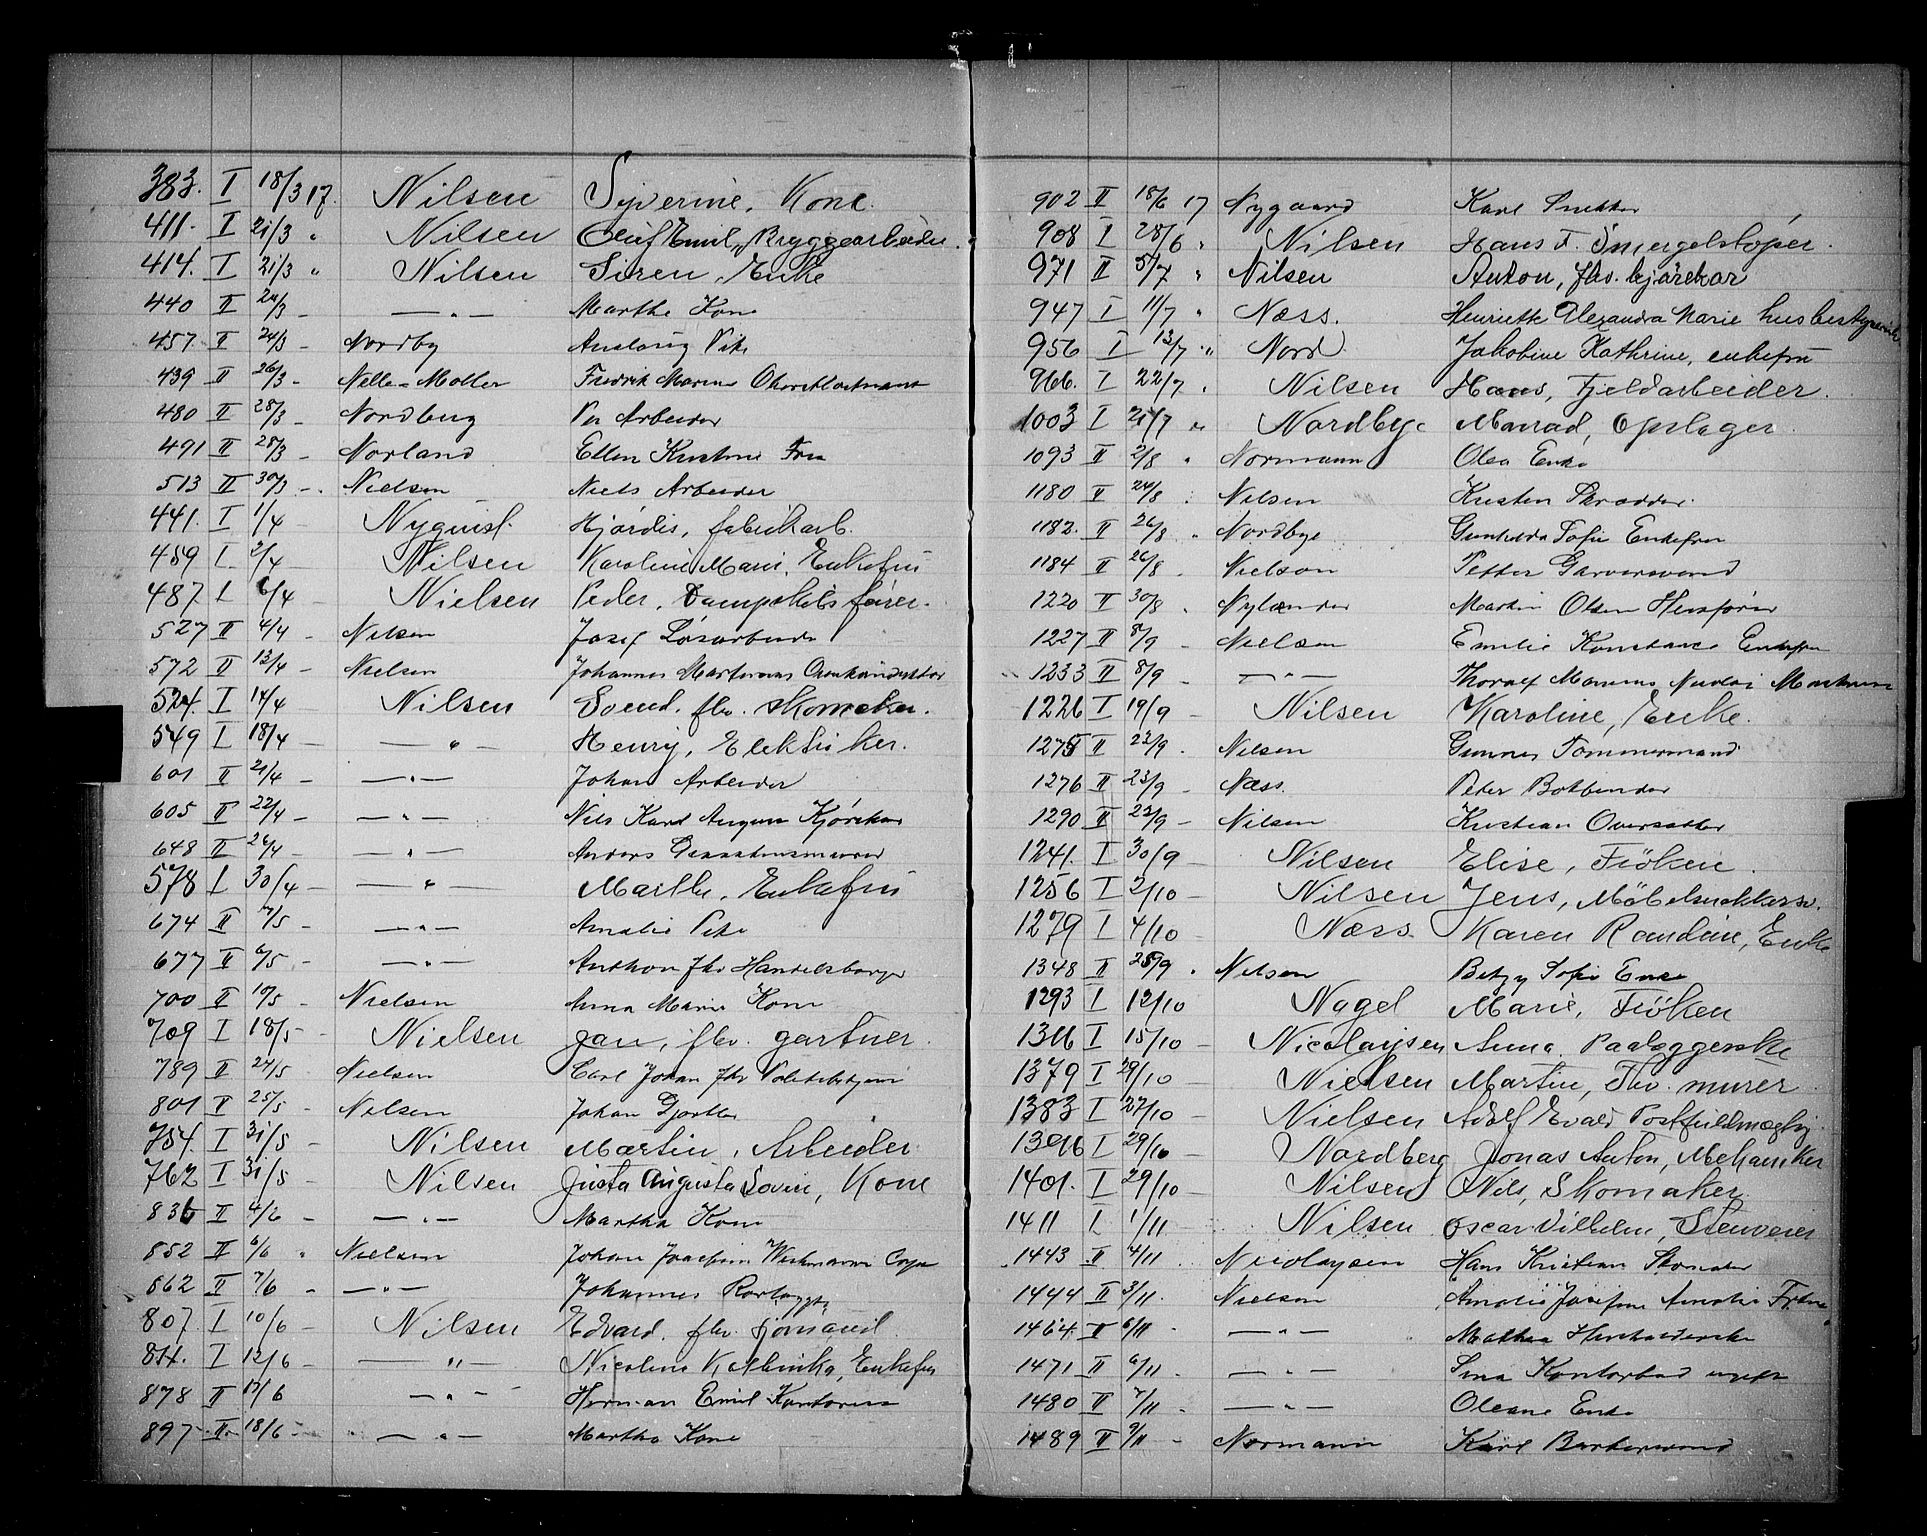 383. I 18/3 17. Nilsen Syverine, Kone.
411. I 21/3 " Nilsen Oluf Emil, Bryggearbeider.
414. I 21/3 " Nilsen Siren, Enke
440 II 24/3 - — " — Marthe Kone
457 II 24/3 - Nordby Aaslaug Pike
439 II 26/3 - Nelle-Møller Fredrik Marius
480 II 28/3 - Nordberg Per Arbeider
491 II 28/3 - Norland Ellen Kristine Fru
513 II 30/3 - Nielsen Niels Arbeider
441. I 1/4 Nyquist. Hjørdis, fabrikarb.
459 I. 2/4 - Nilsen Karoline Marie, Enkefru
487. I 6/4 - Nielsen Peder, Dampskibsfører.
527 II 4/4 - Nilsen Josef Løsarbeider
572 II 13/4 - Nielsen Johannes Martinius
524. I 14/4 Nilsen Svend. fhv. skomaker.
549 I 18/4 — — " — Henry, Elektriker.
601 II 21/4 - — " — Johan Arbeider
605 II 22/4 - — " — Nils Karl August Kjørekar
648 II 26/4 - — " — Anders
578 I 30/4 — — " — Marthe, Enkefru
674 II 7/5 - — " — Amalie Pike
677 II 6/5 - — " — Anthon fhv Handelsborger
700 II 10/5 - Nielsen Anna Marie Kone
709 I 18/5 - Nielsen Jan, fhv. gartner.
789 II 24/5 - Nielsen Carl Johan fhv Politibetjent
801 II 25/5 - Nilsen Johan Gjørtler
754. I 31/5 - Nilsen Martin, Arbeider
762 I 31/5 - Nilsen Justa Augusta Lovise, Kone
836 II 4/6 - — " — Martha Kone
852 II 6/6 " Nielsen Johan Joachim
862 II 7/6 - — " — Johannes Rørlægger
807. I 10/6 - Nilsen Edvard, fhv. sjømand.
814. I 12/6 - — " — Nicoline Enkefru
878 II 17/6 — " — Herman Emil Kontorist
897 II 18/6 - — " — Martha Kone
902 II 18/6 17 Nygaard Karl Snekker
908 I 28/6 " Nilsen Hans F. Smergelstøper.
971 II 5/7 " Nilsen Anton, fhv. kjørekar
947 I 11/7 " Næss. Henriette Alexandra Marie husbestyrerinde
956 I 13/7 " Nord Jakobine Kathrine, enkefru
966. I 22/7 " Nilsen Hans, Fjeldarbeider.
1003 I 21/7 " Nordbye Manrad, Opslager
1093 II 2/8 " Normann Olea Enke
1180 II 24/8 " Nilsen Kristen Skrædder.
1182. II 26/8 " Nordbye Gunhilda Sofie Enkefru
1184 II 26/8 - Nielsen Petter Garversvend
1220 II 30/8 " Nylænder Martin Olsen Husfører
1227 II 8/9 - Nielsen Emilie Konstance Enkefru
1233 II 8/9 - — " — Thoralf Marinius Nicolai
1226 I 19/9 - Nilsen Karoline, Enke.
1275 II 23/9 . Nilsen Gunner Tømmermand
1276 II 23/9 - Næss. Peder Bokbinder
1290 II 23/9 - Nilsen Kristian Oversetter
1241. I 30/9 Nilsen Elise, Frøken.
1256 I 2/10 - Nilsen Jens, Møbelsnekkersv.
1279 I 4/10 - Næss Karen Randine, Enke
1348 II 25/9 " Nilsen Betzy Sofie Enke
1293 I 12/10 Nagel Marie, Frøken
1316 I 15/10 - Nicolaysen Anna. Paaleggerske
1379 I 29/10 - Nielsen Martin, fhv. murer
1383 I 27/10 - Nielsen Adolf Evald Postfuldmægtig.
1396 I 29/10 - Nordberg Jonas Anton, Mekaniker
1401. I 29/10 - Nilsen Nils, Skomaker.
1411 I. 1/11 - Nilsen Oscar Vilhelm, Stenveier
1443 II 4/11 . Nicolaysen Hans Kristian Skomaker
1444 II 3/11. Nielsen Amalie Josefine Amalie Frøken
1464. II 6/11 - — " — Mathea Husholderske
1471 II 6/11. — " — Sina Kontorbud ugift
1480 II 7/11 - — " — Oleane Enke
1489 II 9/11 - Normann Karl Barkersvend